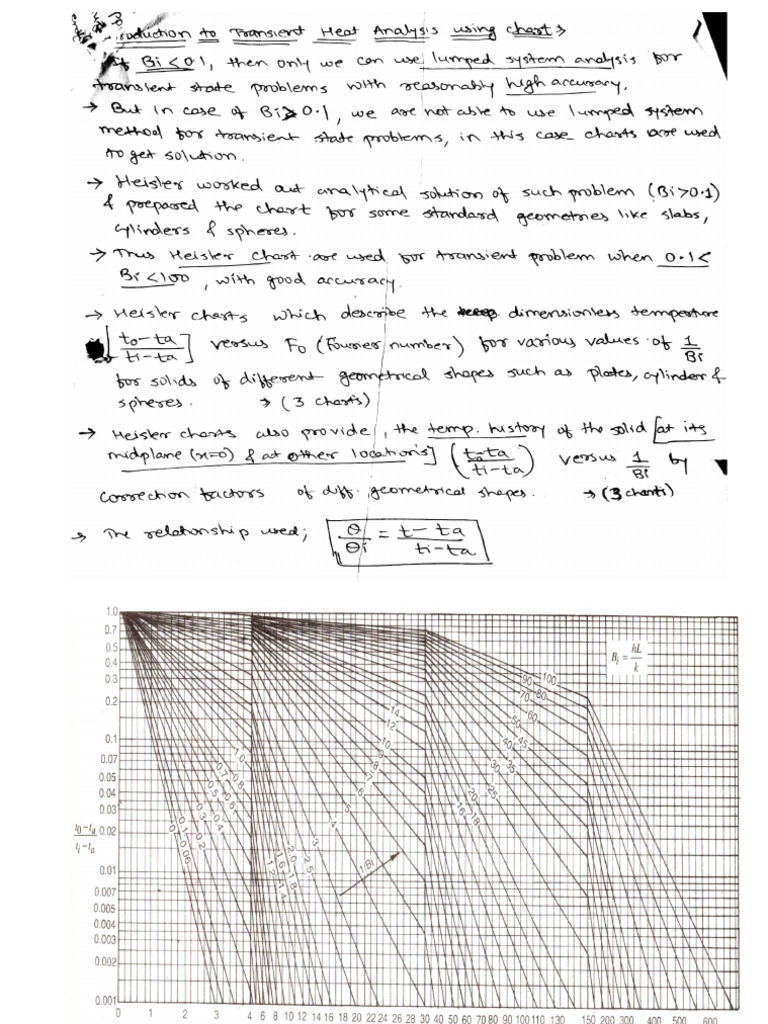 roduction to Transient Heat Analysis using chart →
If Bi < 0.1, then only we can use lumped system analysis for
transient state problems with reasonably high accuracy.
→ But in case of Bi ≥ 0.1, we are not able to use lumped system
method for transient state problems, in this case charts are used
to get solution.
→ Heisler worked out analytical solution of such problem (Bi > 0.1)
& prepared the chart for some standard geometries like slabs,
cylinders & spheres.
→ Thus Heisler Chart are used for transient problem when 0.1 <
Bi < 100, with good accuracy.
→ Heisler charts which describe the dimensionless temperture
[to - ta / ti - ta] versus Fo (Fourier number) for various values of 1/Bi
for solids of different geometrical shapes such as plates, cylinder &
spheres. → (3 charts)
→ Heisler charts also provide, the temp. history of the solid [at its
midplane (x=0) & at other locations] (to - ta / ti - ta) versus 1/Bi by
correction factors of diff. geometrical shapes. → (3 charts)
→ The relationship used; θ/θi = t - ta / ti - ta
1.0
0.7
0.5
0.4
0.3
0.2
0.1
0.07
0.05
0.04
0.03
0.02
0.01
0.007
0.005
0.004
0.003
0.002
0.001
t0 - ta / ti - ta
Bi = hL / k
100
90 80
70
60
50
45
40
35
30
25
20
18
16
14
12
10
9
8
7
6
5
4
3
2.5
2.0
1.8
1.6
1.4
1.2
1.0
0.8
0.7
0.6
0.5
0.4
0.3
0.2
0.1
0.05
0
1/Bi
0 1 2 3 4 6 8 10 12 14 16 18 20 22 24 26 28 30 40 50 60 70 80 90 100 110 130 150 200 300 400 500 600